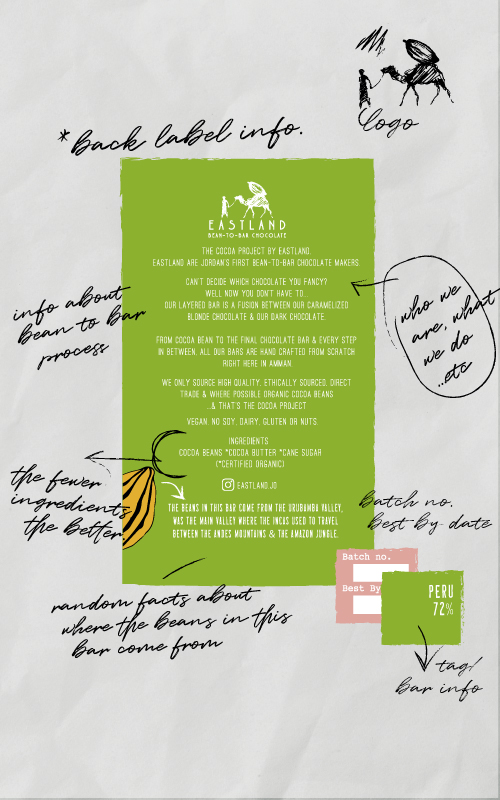 logo
*back label info.
EASTLAND
BEAN-TO-BAR CHOCOLATE
THE COCOA PROJECT BY EASTLAND.
EASTLAND ARE JORDAN'S FIRST BEAN-TO-BAR CHOCOLATE MAKERS.
CAN'T DECIDE WHICH CHOCOLATE YOU FANCY?
WELL NOW YOU DON'T HAVE TO..
OUR LAYERED BAR IS A FUSION BETWEEN OUR CARAMELIZED
BLONDE CHOCOLATE & OUR DARK CHOCOLATE.
who we
are, what
we do
..etc
info about
bean to bar
process
FROM COCOA BEAN TO THE FINAL CHOCOLATE BAR & EVERY STEP
IN BETWEEN, ALL OUR BARS ARE HAND CRAFTED FROM SCRATCH
RIGHT HERE IN AMMAN.
WE ONLY SOURCE HIGH QUALITY, ETHICALLY SOURCED, DIRECT
TRADE & WHERE POSSIBLE ORGANIC COCOA BEANS
..& THAT'S THE COCOA PROJECT
VEGAN. NO SOY, DAIRY, GLUTEN OR NUTS.
INGREDIENTS
COCOA BEANS *COCOA BUTTER *CANE SUGAR
(*CERTIFIED ORGANIC)
the fewer
ingredients
the better
EASTLAND.JO
THE BEANS IN THIS BAR COME FROM THE URUBAMBA VALLEY,
WAS THE MAIN VALLEY WHERE THE INCAS USED TO TRAVEL
BETWEEN THE ANDES MOUNTAINS & THE AMAZON JUNGLE.
Batch no.
best-by-date
Batch no.
Best By
PERU
72%
random facts about
where the beans in this
bar come from
tag/
bar info